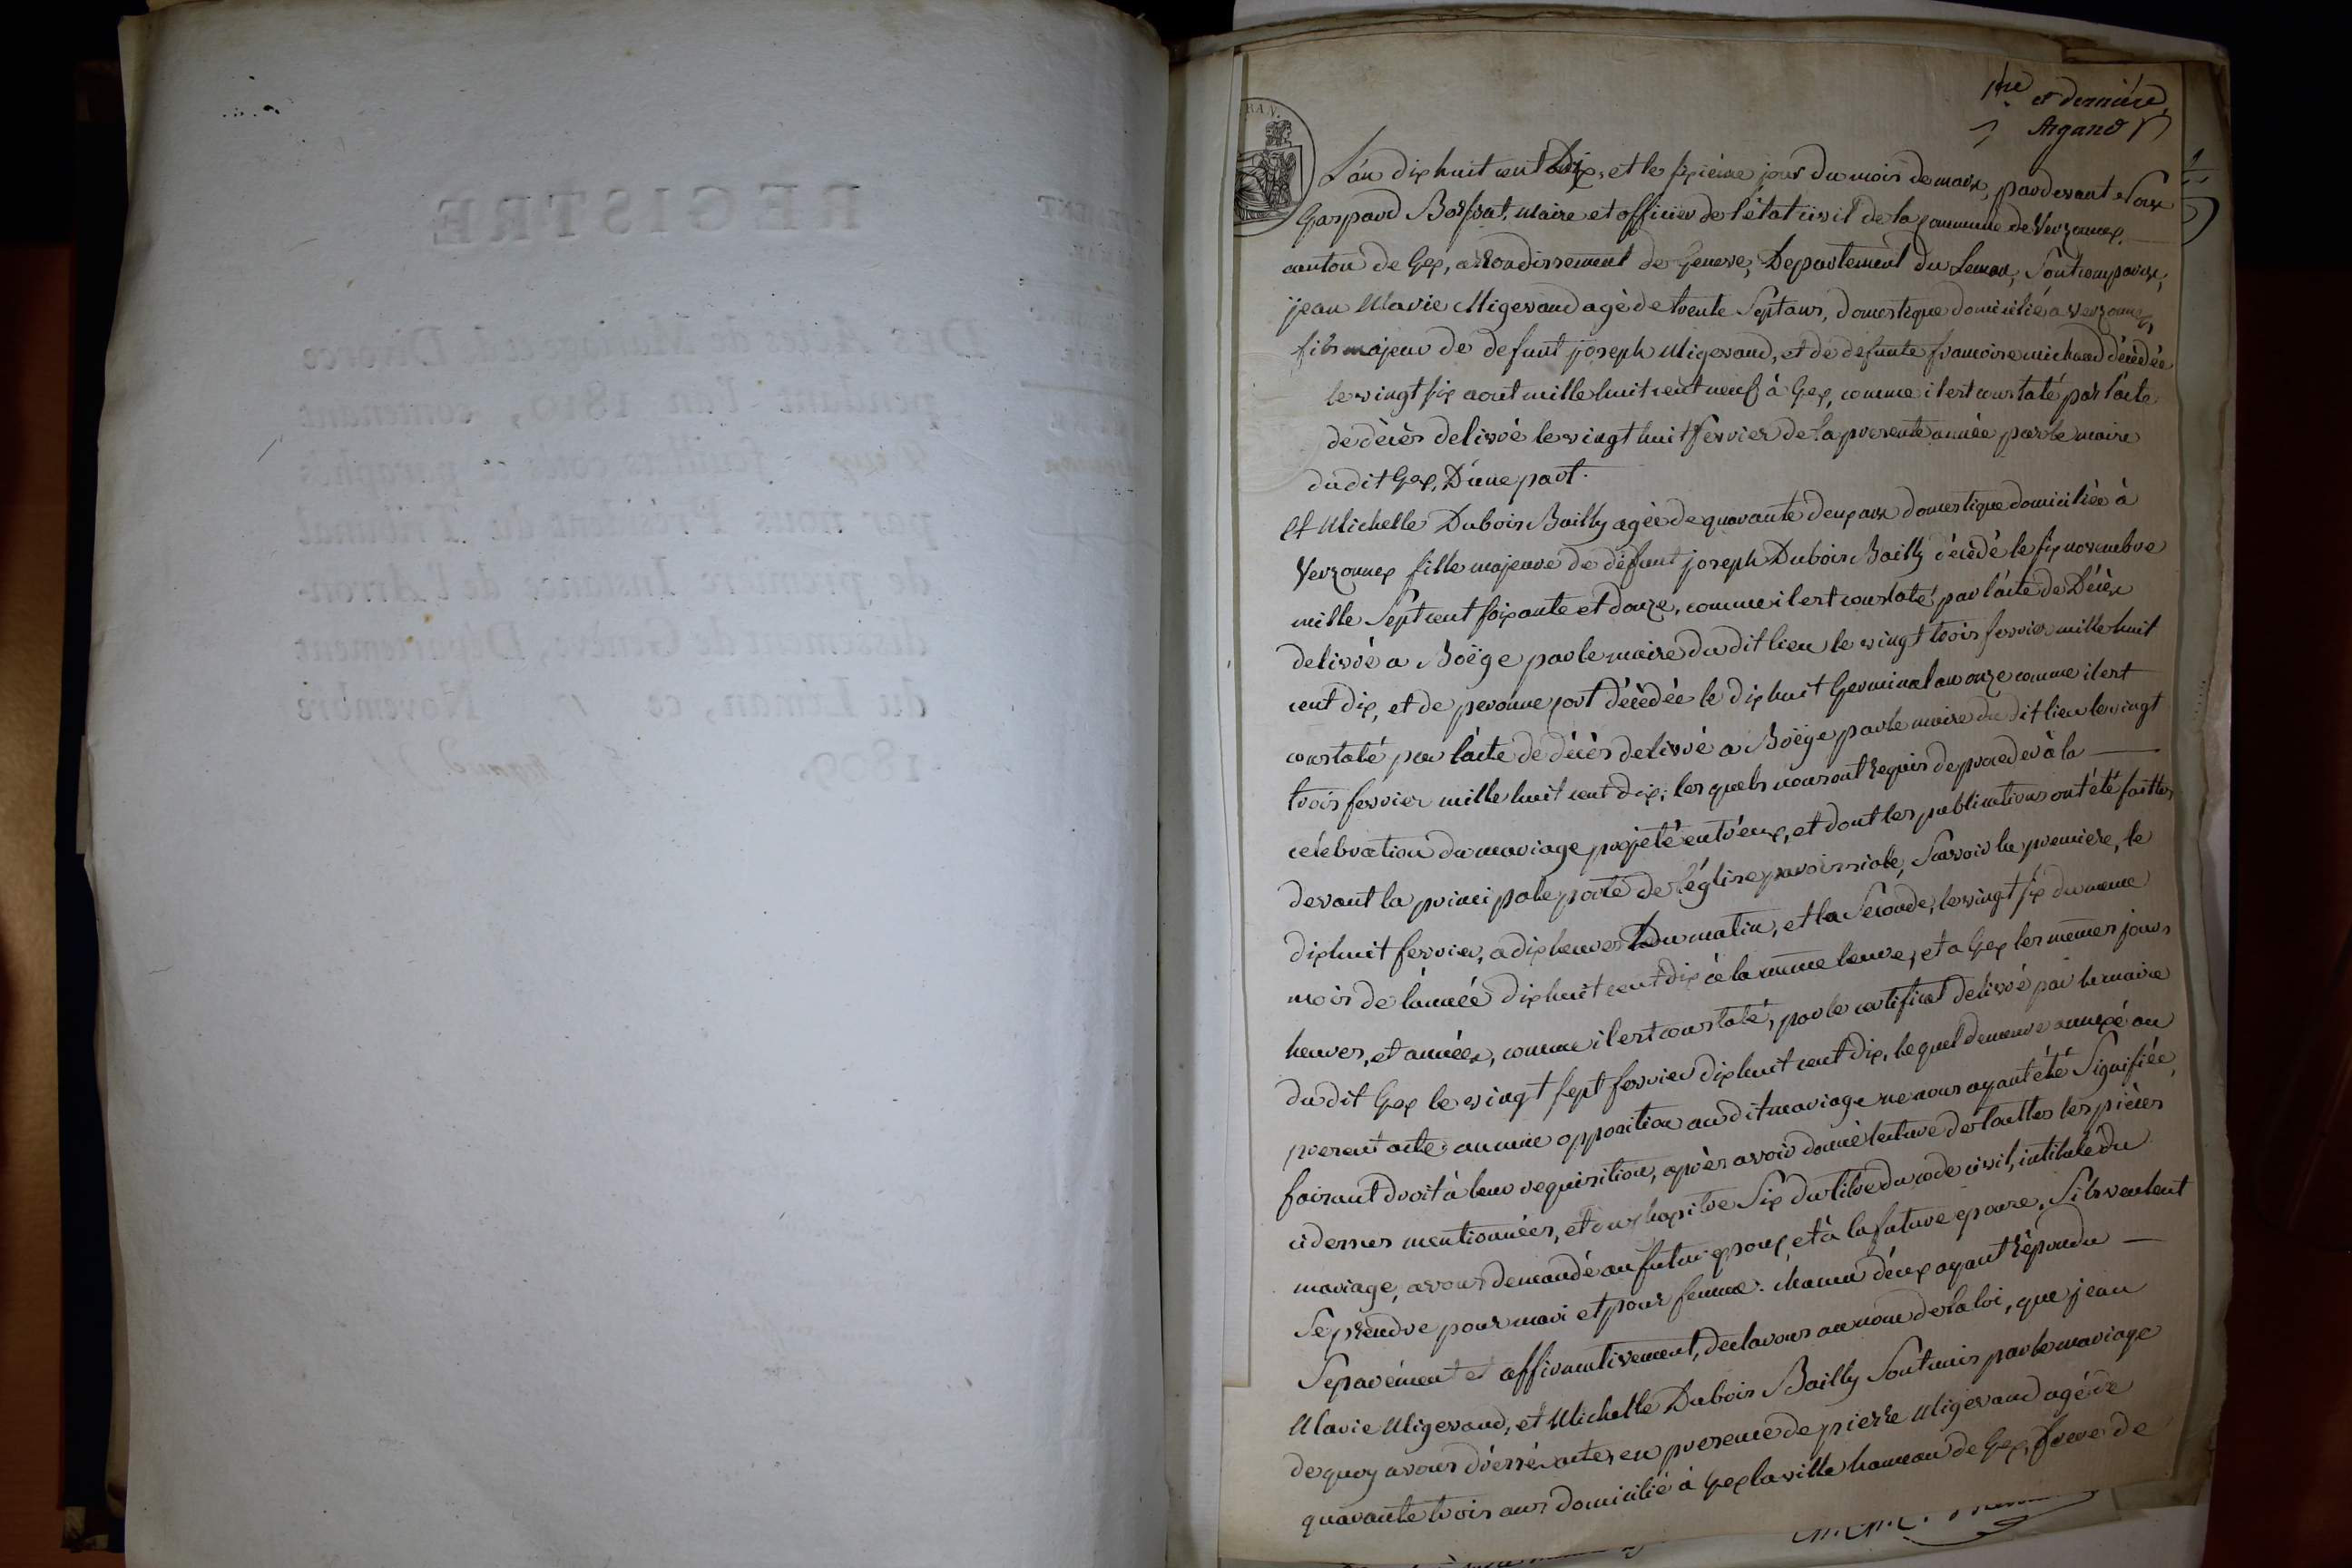 REGISTRE
Des Actes de Mariage et de Divorce
pendant l'an 1810, contenant
deux feuillets cotés et paraphés
par nous Président du Tribunal
de première Instance de l'Arron-
dissement de Genève, Département
du Léman, ce 17 Novembre
1809. Argand
RAN.
1re et dernière
Argand
L'an dix huit cent Dix, et le sixième jour du mois de mars, pardevant Nous
Gaspard maire et officier de l'état civil de la commune de Verzonnex,
canton de Gex, arrondissement de Geneve, Departement du Leman, Sont comparus,
jean Marie Migerand agé de trente Sept ans, domestique domicilié a Verzonnex,
fils majeur de defunt joseph Migerand, et de defunte francoise michaud décédée
le vingt six aout mille huit cent neuf à Gex, comme il est constaté par l'acte
de dècès delivré le vingt huit fevrier de la presente année par le maire
du dit Gex, D'une part.
Et Michelle Dubois Bailly agée de quarante deux ans domestique domiciliée à
Verzonnex fille majeure de défunt joseph Dubois Bailly décédé le six novembre
mille Sept cent soixante et douze, comme il est constaté par l'acte de Décès
delivré a Boëge par le maire du dit lieu le vingt trois fevrier mille huit
cent dix, et de peronne décèdée le dix huit Germinal an onze comme il est
constaté par l'acte de décès delivré a Boëge par le maire du dit lieu le vingt
trois fevrier mille huit cent dix; les quels nous ont requis de proceder à la
celebration du mariage projeté entr'eux, et dont les publications ont été faittes
devant la principale porte de l'église paroissiale, Scavoir la premiere, le
dix huit fevrier, a dix heures Du matin, et la Seconde, le vingt six du meme
mois de l'année dix huit cent dix à la meme heure, et a Gex les memes jours
heures, et années, comme il est constaté, par le certificat delivré par le maire
du dit Gex le vingt sept fevrier dix huit cent dix, le quel demeure annexé au
present acte aucune opposition au dit mariage ne nous ayant été Signifiée,
faisant droit à leur requisition, après avoir donné lecture de touttes les pièces
ci dessus mentionnées, et du chapitre Six du titre du code civil, intitulé du
mariage, avons demandé au futur epoux, et à la future epouse, S'ils veulent
Se prendre pour mari et pour femme. chacun d'eux ayant répondu
Separément et affirmativement, declarons au nom de la loi, que jean
Marie Migerand, et Michelle Dubois Bailly Sont unis par le mariage
de quoy avons dréssé acte, en presence de pierre Migerand agé de
quarante trois ans domicilié à Gex la ville hameau de Gex, frere de